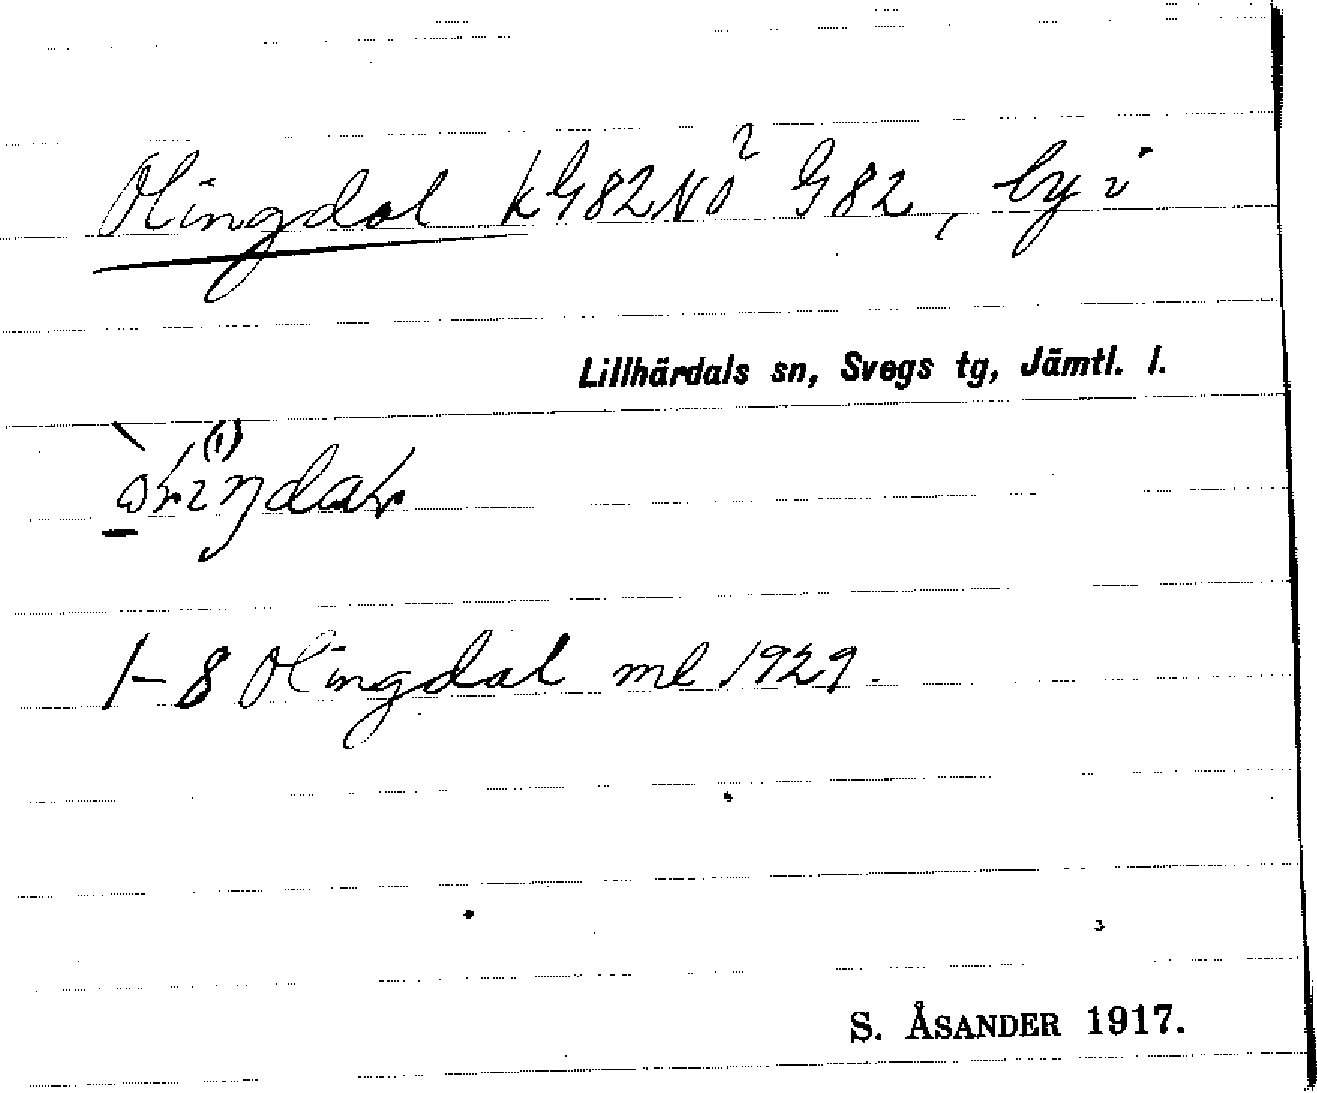 Olingdal k G82NÖ² G82, by i
Lillhärdals sn, Svegs tg, Jämtl. l.
1-8 Olingdal ml 1929.
S. ÅSANDER 1917.